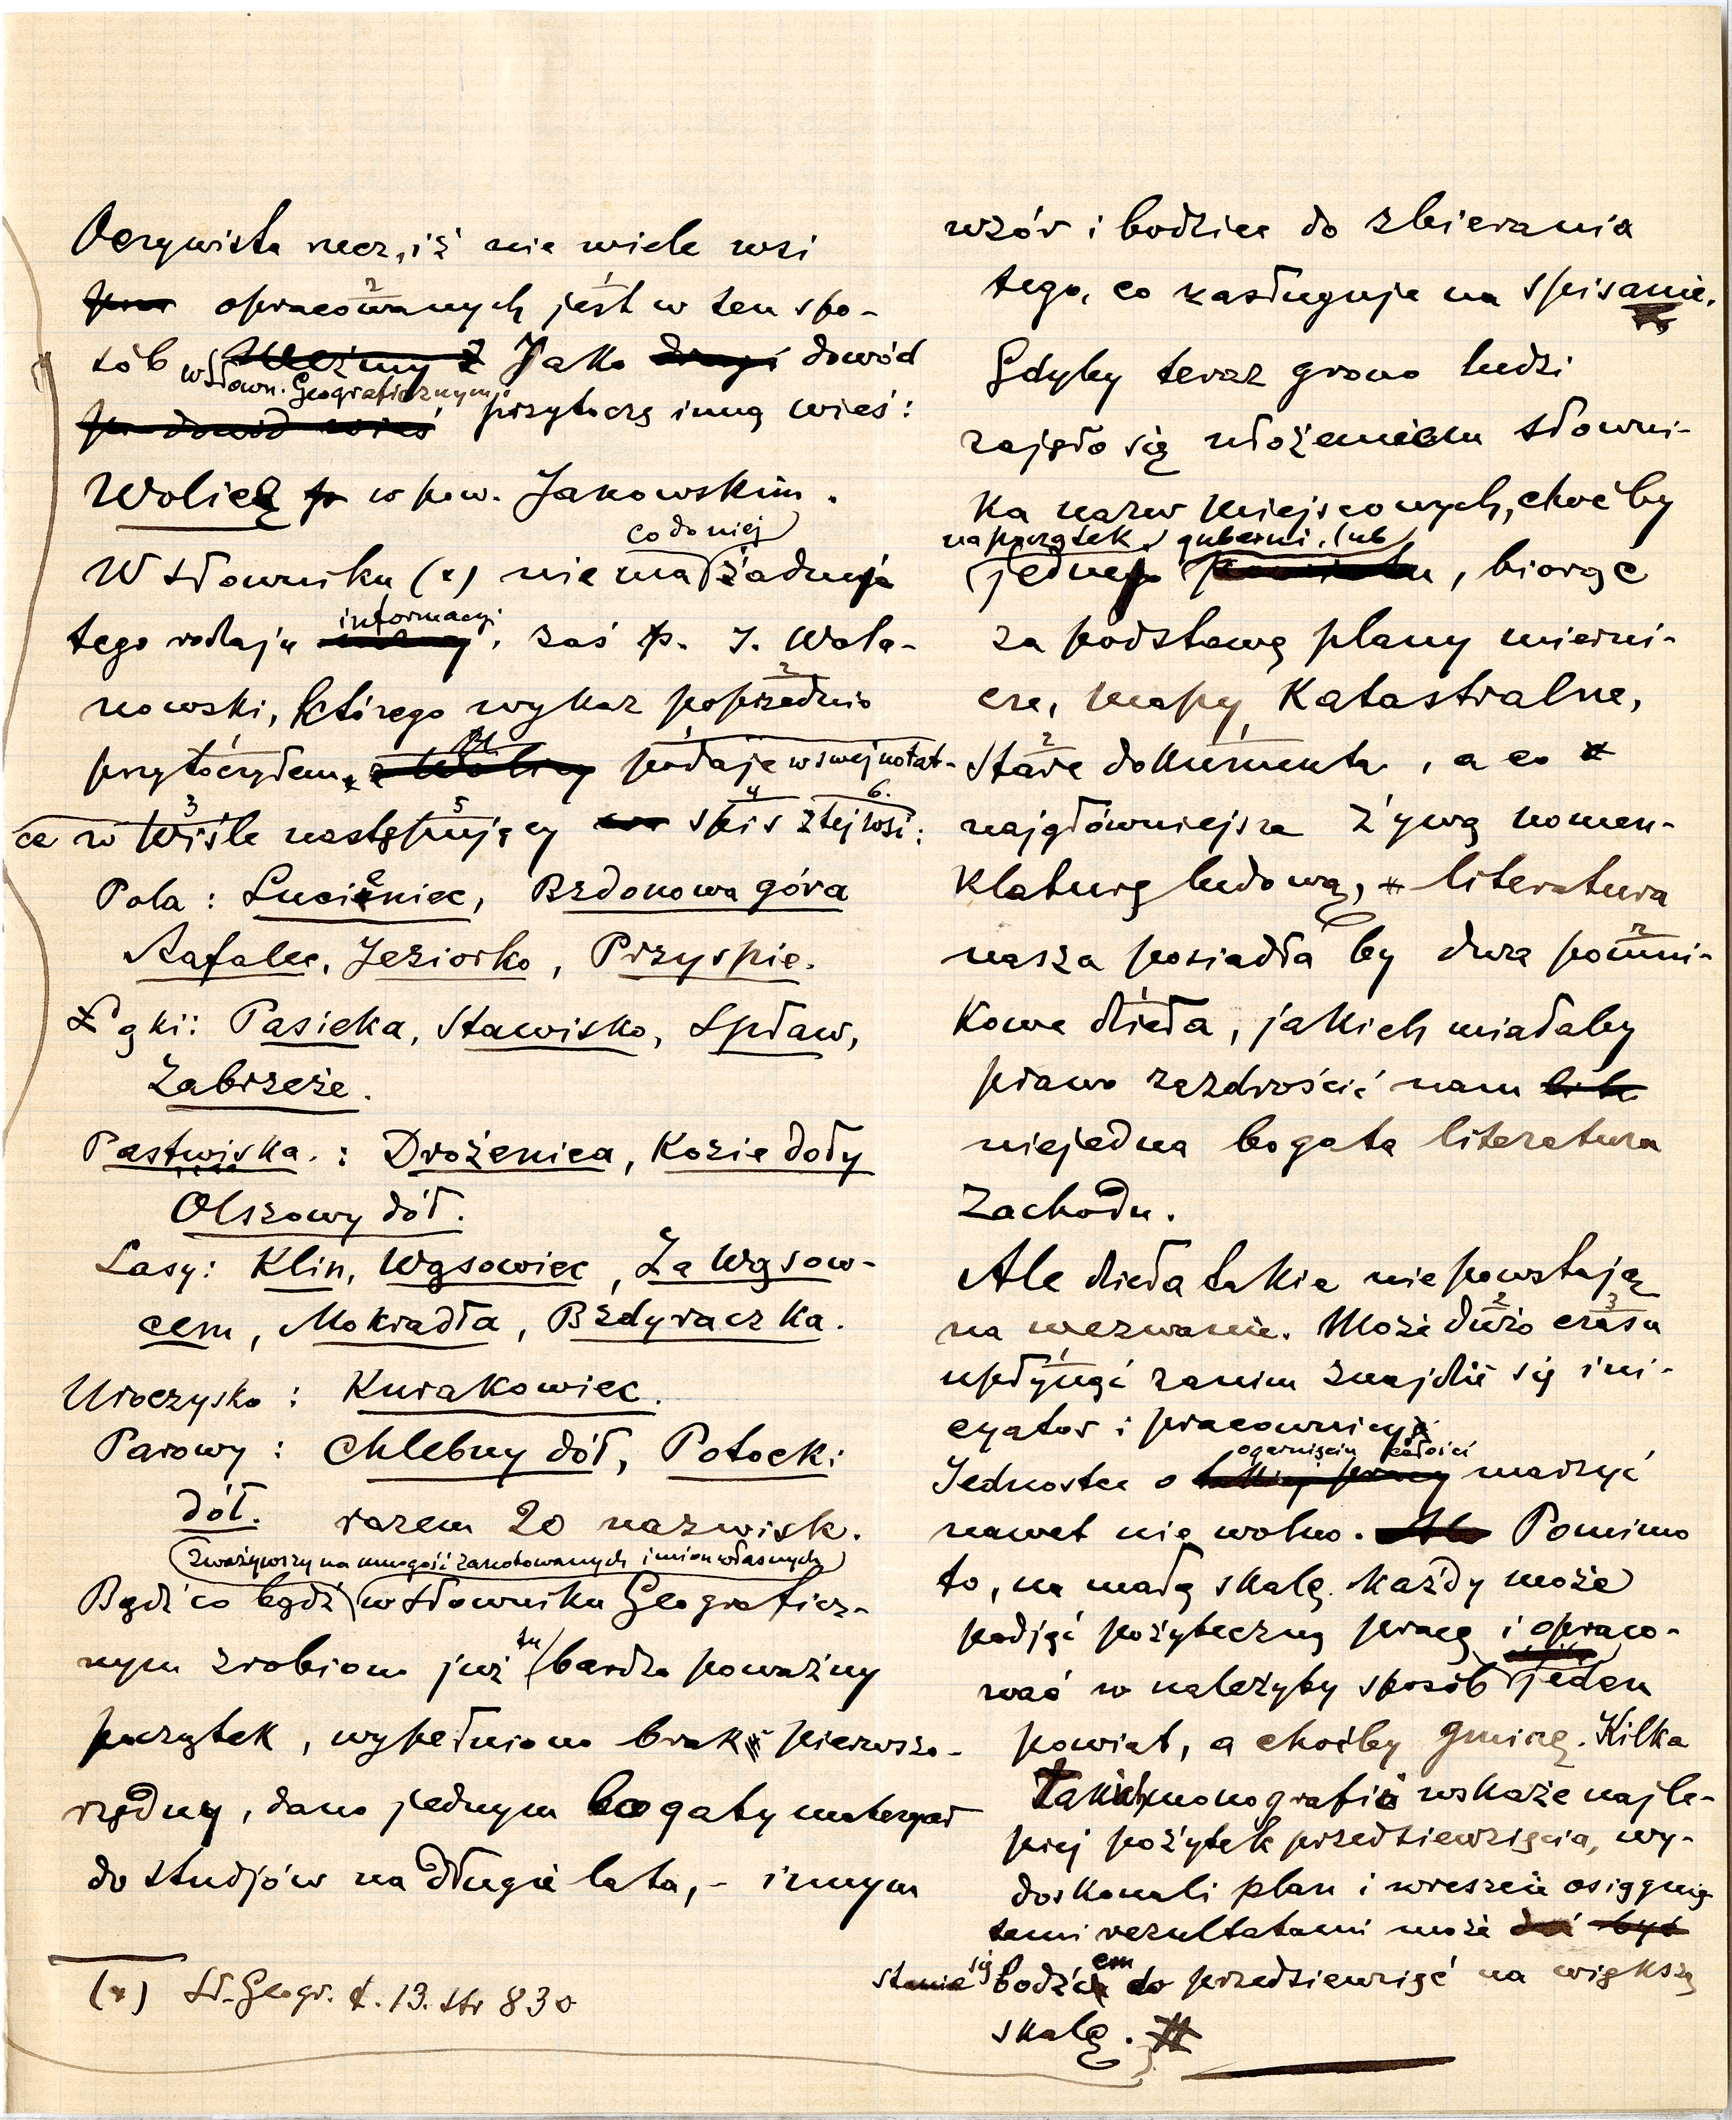 Oczywista rzecz, iż nie wiele wsi
opracowanych jest w ten spo-
sób w Słown. Geograficznym. Jako dowód
przytoczę inną wieś:
Wolicę w pow. Janowskim.
co do niej
W Słowniku (x) nie ma żadnej
tego rodzaju informacyi, zaś p. J. Wola-
nowski, którego wykaz poprzednio
przytoczyłem, podaje w swej notat-
ce w Wiśle następujący spis z tej wsi:
Pola: Lucieniec, Bzdonowa góra
Rafalec, Jeziorko, Przyspie.
Łąki: Pasieka, Stawisko, Spław,
Zabrzeże.
Pastwiska: Drożenica, Kozie doły
Olszowy dół.
Lasy: Klin, Wąsowiec, Za Wąsow-
cem, Mokradła, Bzdyraczka.
Uroczysko: Kurakowiec.
Parowy: Chlebny dół, Potocki
dół. razem 20 nazwisk.
zważywszy na mnogość zanotowanych imion własnych
Bądź co bądź w Słowniku Geograficz-
nym zrobiono już tu bardzo poważny
początek, wypełniono brak pierwszo-
rzędny, dano jednym bogaty materyał
do studjów na długie lata, - innym
(x) Sł. Geogr. t. 13. str 830
wzór i bodziec do zbierania
tego, co zasługuje na spisanie.
Gdyby teraz grono ludzi
zajęło się ułożeniem słowni-
ka nazw miejscowych, choćby
na początek gubernii, lub
jednej, biorąc
za podstawę plany mierni-
cze, mapy Katastralne,
stare dokumenta, a co
najgłówniejsza żywą nomen-
klaturę ludową, literatura
nasza posiadła by dwa pomni-
kowe dzieła, jakich miałaby
prawo zazdrościć nam
niejedna bogata literatura
Zachodu.
Ale dzieła takie nie powstają
na wezwanie. Może dużo czasu
upłynąć zanim znajdzie się ini-
cyator i pracownicy
ogarnięciu całości
Jednostce o marzyć
nawet nie wolno. Pomimo
to, na małą skalę każdy może
podjąć pożyteczną pracę i opraco-
wać w należyty sposób jeden
powiat, a choćby gminę. Kilka
takich monografii wskaże najle-
piej pożytek przedsięwzięcia, wy-
doskonali plan i wreszcie osiągnię-
temi rezultatami może
stanie się bodźcem do przedsięwzięć na większą
skalę.